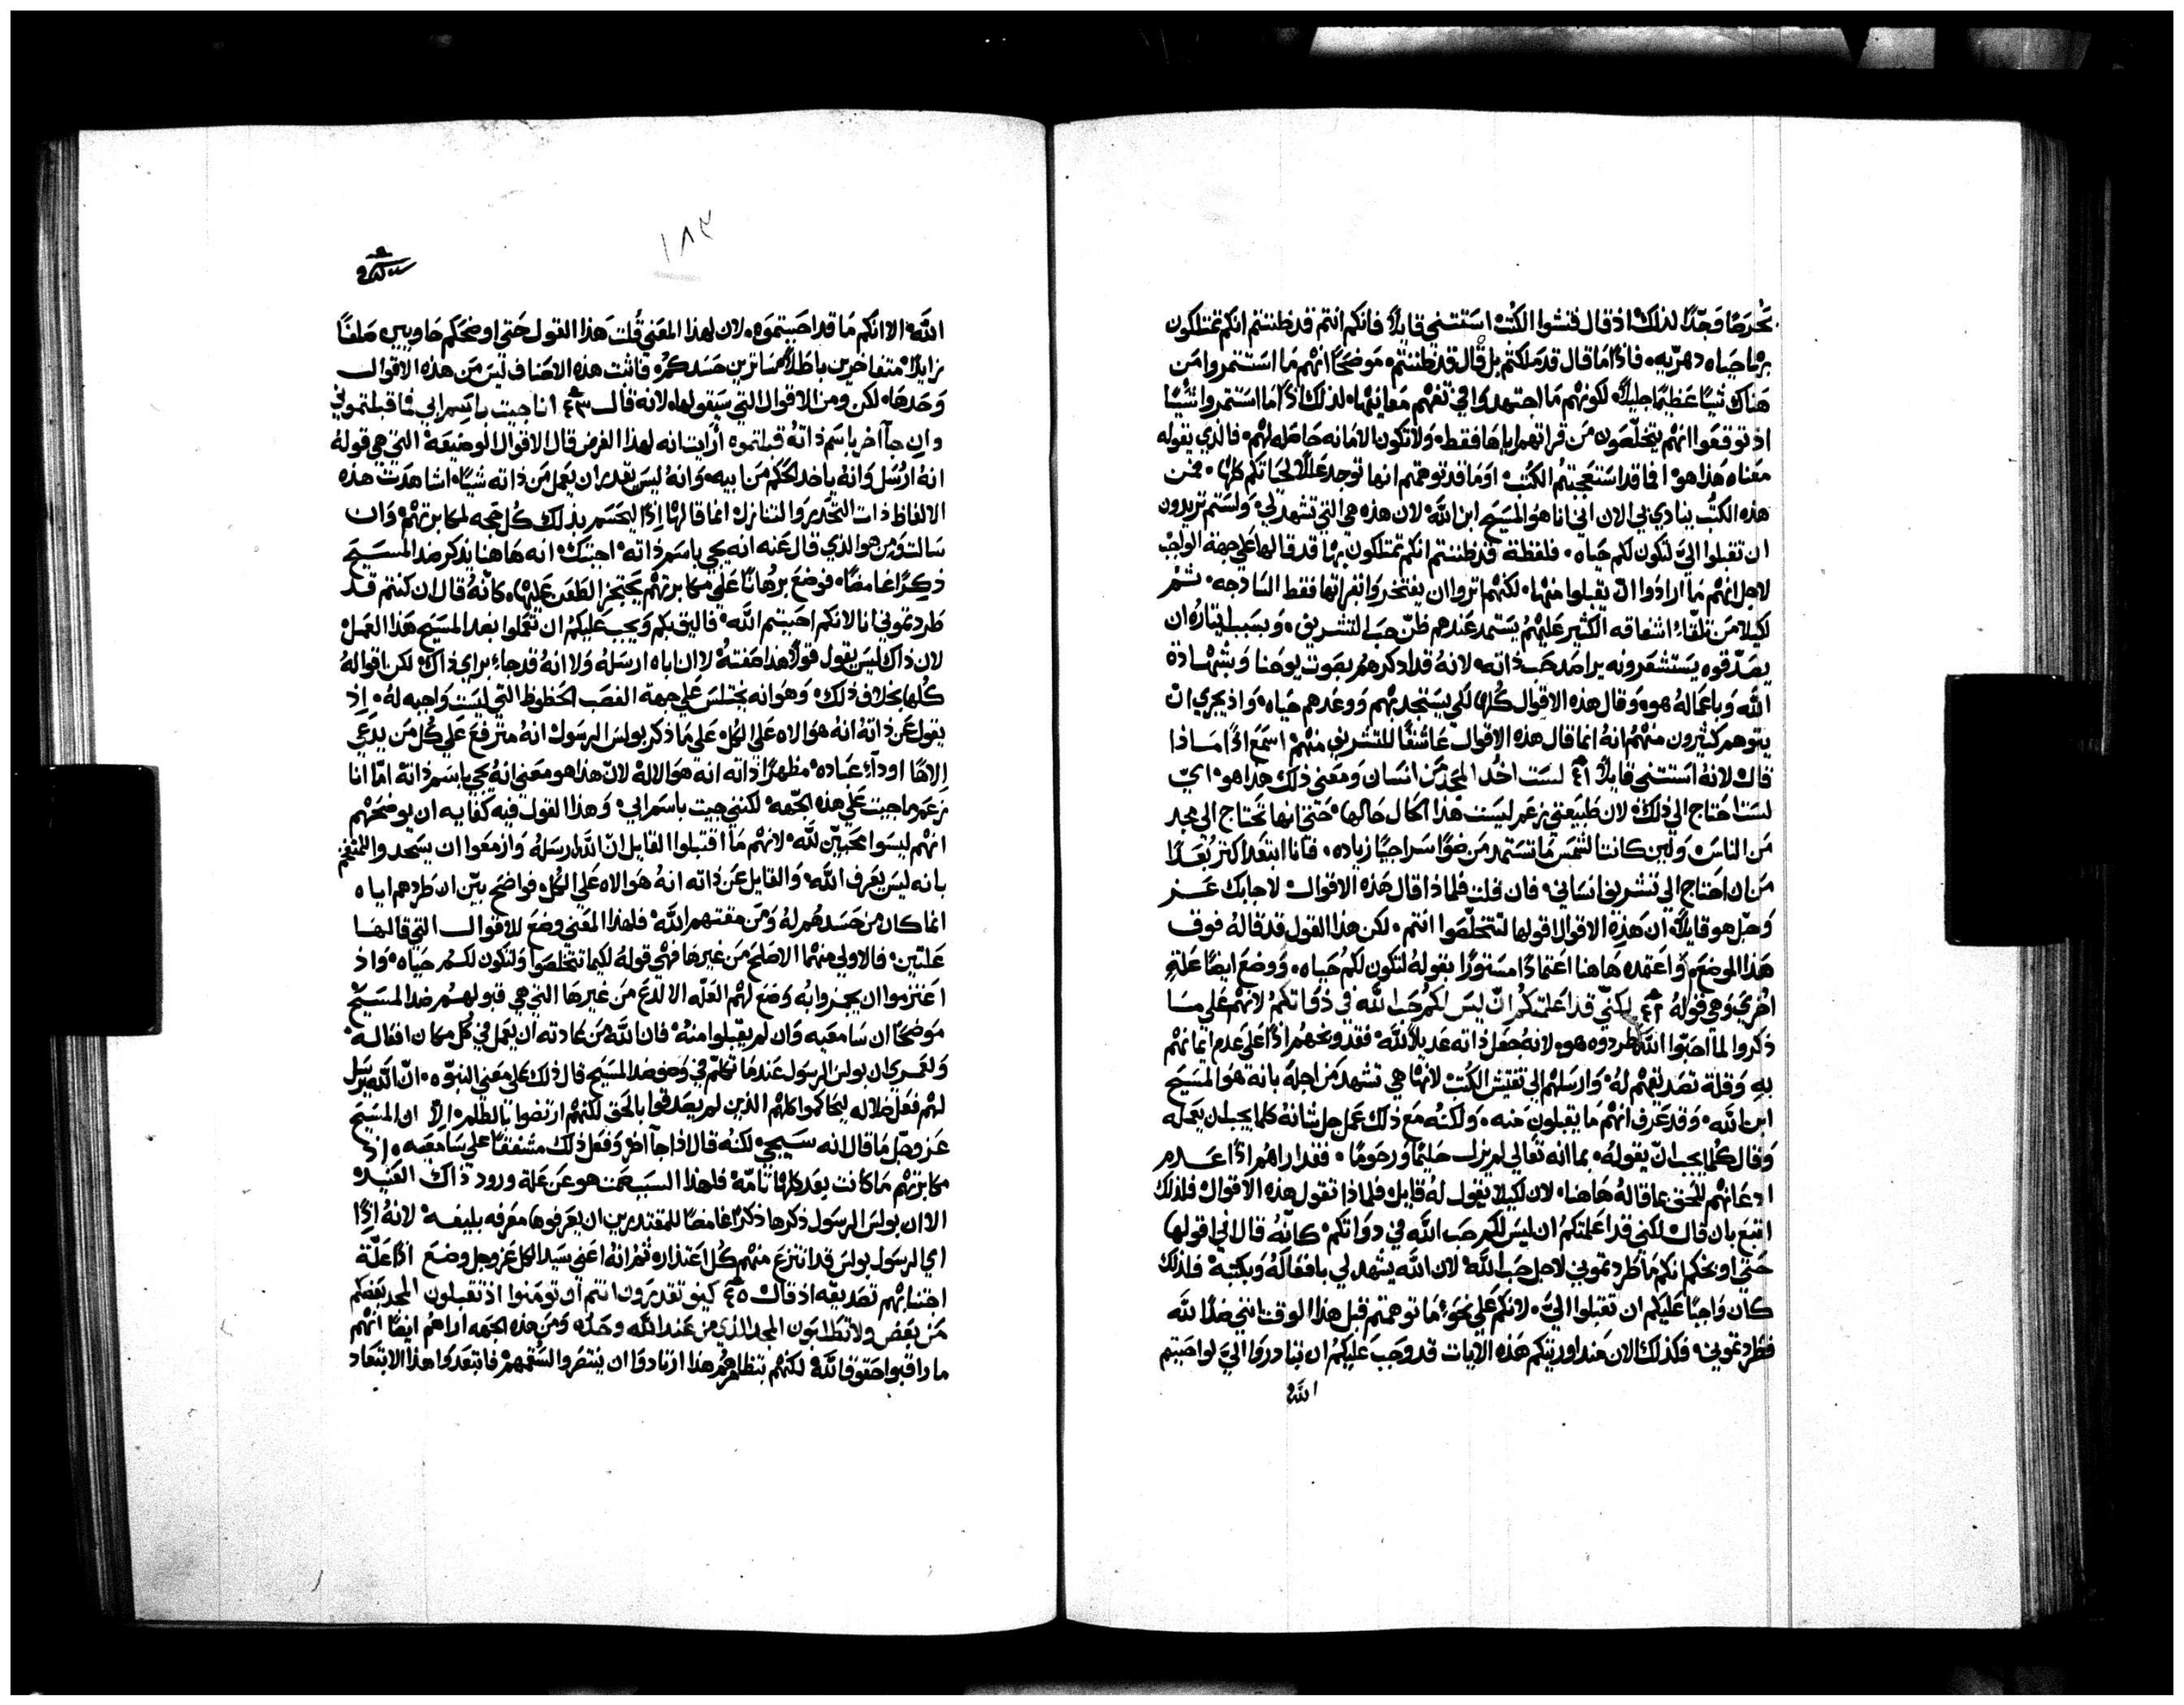 بحرصًا وجدًا لذلك اذ قال فتشوا الكتب استثنى قايلًا فانكم انتم قد ظننتم انكم تمتلكون
بها حياه دهريه، فاذًا ما قال قد ملكتم بل قال قد ظننتم، موضحًا انهم ما استثمروا من
هناك شيًا عظيمًا جليلًا، لكونهم ما اجتهدوا في تفهم معانيها، لذلك اذًا ما استثمروا شيًا
اذ توقعوا انهم يتخلصون من قراتهم اياها فقط، ولا تكون الامانه حاصله لهم، فالذي يقوله
معناه هذا هو، افما قد استعجبتم الكتب، اوما قد توهمتم انها توجد عللًا لحياتكم كلها، فمن
هذه الكتب ينادي لي الان اني انا هو المسيح ابن الله، لان هذه هي التي تشهد لي، ولستم تريدون
ان تقبلوا اليّ لتكون لكم حياه، فلفظة قد ظننتم انكم تمتلكون بها قد قالها على جهة الواجب
لاجل انهم ما ارادوا ان يقبلوا منها، لكنهم اثروا ان يفتخروا بقراتها فقط الساذجه، ثم
لكيلا من تلقاء اشفاقه الكثير عليهم يستمد عندهم ظنّ حب التشريف، وبسبب ايثاره ان
يصدقوه يستشعرونه يراصد حب ذاته، لانه قد اذكرهم بصوت يوحنا وبشهادة
الله وباعماله هو، وقال هذه الاقوال كلها لكي يستنجد بهم ووعدهم حياه، واذ يجري ان
يتوهم كثيرون منهم انه انما قال هذه الاقوال عاشقًا للتشريف منهم اسمع اذًا ماذا
قال لانه استثنى قايلًا ٤١ لست اخذ المجد من انسان ومعنى ذلك هذا هو، ايّ
لست احتاج الي ذلك، لان طبيعتي زعم ليست هذا الحال حالها، حتي انها تحتاج الي مجد
من الناس ولين كانت الشمس ما تستمد من ضوًا سراجيًا زياده، فانا ابتعد اكثر بُعدًا
من ان احتاج الي تشريف انساني، فان قلت فلماذا قال هذه الاقوال لاجابك عز
وجل هو قايلًا، ان هذه الاقوال اقولها لتتخلصوا انتم، لكن هذا القول قد قاله فوق
هذا الموضع، واعتمده هاهنا اعتمادًا مستورًا بقوله لتكون لكم حياه، ووضع ايضًا علةٍ
اخري وهي قوله ٤٢ لكني قد اعلمتكم ان ليس لكم حب الله في ذواتكم لانهم علي ما
ذكروا لما احبوا الله طردوه هو، لانه جعل ذاته عديلًا لله، فقد وبخهم اذًا علي عدم ايمانهم
به وقلة تصديقهم له، وارسلهم الي تفتيش الكتب لانها هي تشهد من اجله بانه هو المسيح
ابن الله، وقد عرف انهم ما يقبلون منه، ولكنه مع ذلك عمل جل شانه كلما يجب ان يعمله
وقال كلما يجب ان يقوله، بما انه تعالي لم يزل حليمًا ورحومًا، فقد اراهم اذًا عدم
اذعانهم للحق بما قاله هاهنا، لان لكيلا يقول له قايل فلماذا تقول هذه الاقوال فلذلك
اتبع بان قال لكني قد اعلمتكم ان ليس لكم حب الله في ذواتكم، كانّه قال اني اقولها
حتي اوبخكم انكم ما طردتموني لاجل حب الله، لان الله يشهد لي بافعاله وبكتبه، فلذلك
كان واجبًا عليكم ان تقبلوا اليّ، لانكم علي نحو ما توهمتم قبل هذا الوقت انني ضدًا لله
فطردتموني، فكذلك الان منذ اوريتكم هذه الايات قد وجب عليكم ان تبادروا اليّ لو احببتم
الله
١٨٣
الله، الا انكم ما قد احببتموه، لان لهذا المعني قلت هذا القول حتى اوضحكم حاويين صلفًا
زايدًا، متفاخرين باطلًا ساترين حسدكم، فاثبت هذه الاصناف ليس من هذه الاقوال
وحدها، لكن ومن الاقوال التي سيقولها، لانه قال ٤٣ انا جيت باسم ابي فما قبلتموني
وان جآ اخر باسم ذاته قبلتموه، ارايت انه لهذا الغرض قال الاقوال الوضيعة التي هي قوله
انه ارسل وانه ياخذ الحكم من ابيه، وانه ليس يقدر ان يعمل من ذاته شيًا، اشاهدت هذه
الالفاظ ذات التحدير والتنازل، انما قالها اذًا ليحسم بذلك كل حجه لمكابرتهم، وان
سالت ومن هو الذي قال عنه انه يجي باسم ذاته، اجبتك، انه هاهنا يذكر ضد المسيح
ذكرًا غامضًا، فوضع برهانًا علي مكابرتهم يحتجز الطعن عليها، كانّه قال ان كنتم قد
طردتموني انا لانكم احببتم الله، فاليق بكم ويجب عليكم ان تعملوا بضد المسيح هذا العمل
لان ذاك ليس يقول قولًا هذا صفته، لا ان اباه ارسله ولا انه قد جاء براي ذاك، لكن اقواله
كلها بخلاف ذلك، وهو انه يختلس علي جهة الغصب الحظوظ التي ليست واجبه له، اذ
يقول عن ذاته انه هو الاه علي الكل، علي ما ذكر بولس الرسول انه مترفع علي كل من يدعي
الاهًا او ذآء عباده، مظهرًا ذاته انه هو الاله لان هذا هو معنى انه يجي باسم ذاته، امّا انا
زعم ما جيت علي هذه الجهه، لكنني جيت باسم ابي، وهذا القول فيه كفايه ان يوضحهم
انهم ليسوا محبين لله، لانهم ما اقتبلوا القايل ان الله ارسله، وازمعوا ان يسجدوا للمفتخر
بانه ليس يعرف الله، والقايل عن ذاته انه هو الاه علي الكل، فواضح بيّن ان طردهم اياه
انما كان من حسدهم له ومن مقتهم الله، فلهذا المعني وضع للاقوال التي قالها
علتين، فالاولي منهما الاصلح من غيرها فهي قوله لكيما تتخلصوا ولتكون لكم حياه، واذ
اعتزموا ان يهزوا به وضع لهم العله الالدغ من غيرها التي هي قبولهم ضد المسيح
موضحًا ان سامعيه وان لم يقبلوا منه، فان الله من عادته ان يعمل في كل مكان افعاله
ولعمري ان بولس الرسول عندما تكلم في وصف ضد المسيح قال ذلك علي معني النبوه، ان الله يرسل
لهم فعل ضلاله ليحاكموا كلهم الذين لم يصدقوا بالحق لكنهم ارتضوا بالظلم، الا ان المسيح
عز وجل ما قال انه سيجي، لكنه قال اذا جآ اخر، وفعل ذلك مشفقًا علي سامعيه، اذ
مكابرتهم ما كانت بعد كلها تامّة، فلهذا السبب صمت هو عن علة ورود ذاك العنيد،
الا ان بولس الرسول ذكرها ذكرًا غامضًا للمقتدرين ان يعرفوها معرفه بليغه، لانه اذًا
اي الرسول بولس قد انتزع منهم كل اعتذار، ثم انه اعني سيد الكل عز وجل وضع اذًا علّة
اجتنابهم تصديقه اذ قال ٤٥ كيف تقدرون انتم ان تومنوا اذ تقبلون المجد بعضكم
من بعض ولا تطلبون المجد الذي من عند الله وحده، ومن هذه الجهه اراهم ايضًا انهم
ما راقبوا حقوق الله، لكنهم بتظاهرهم هذا ارتادوا ان ينتصروا لسقمهم، فابتعدوا هذا الابتعاد